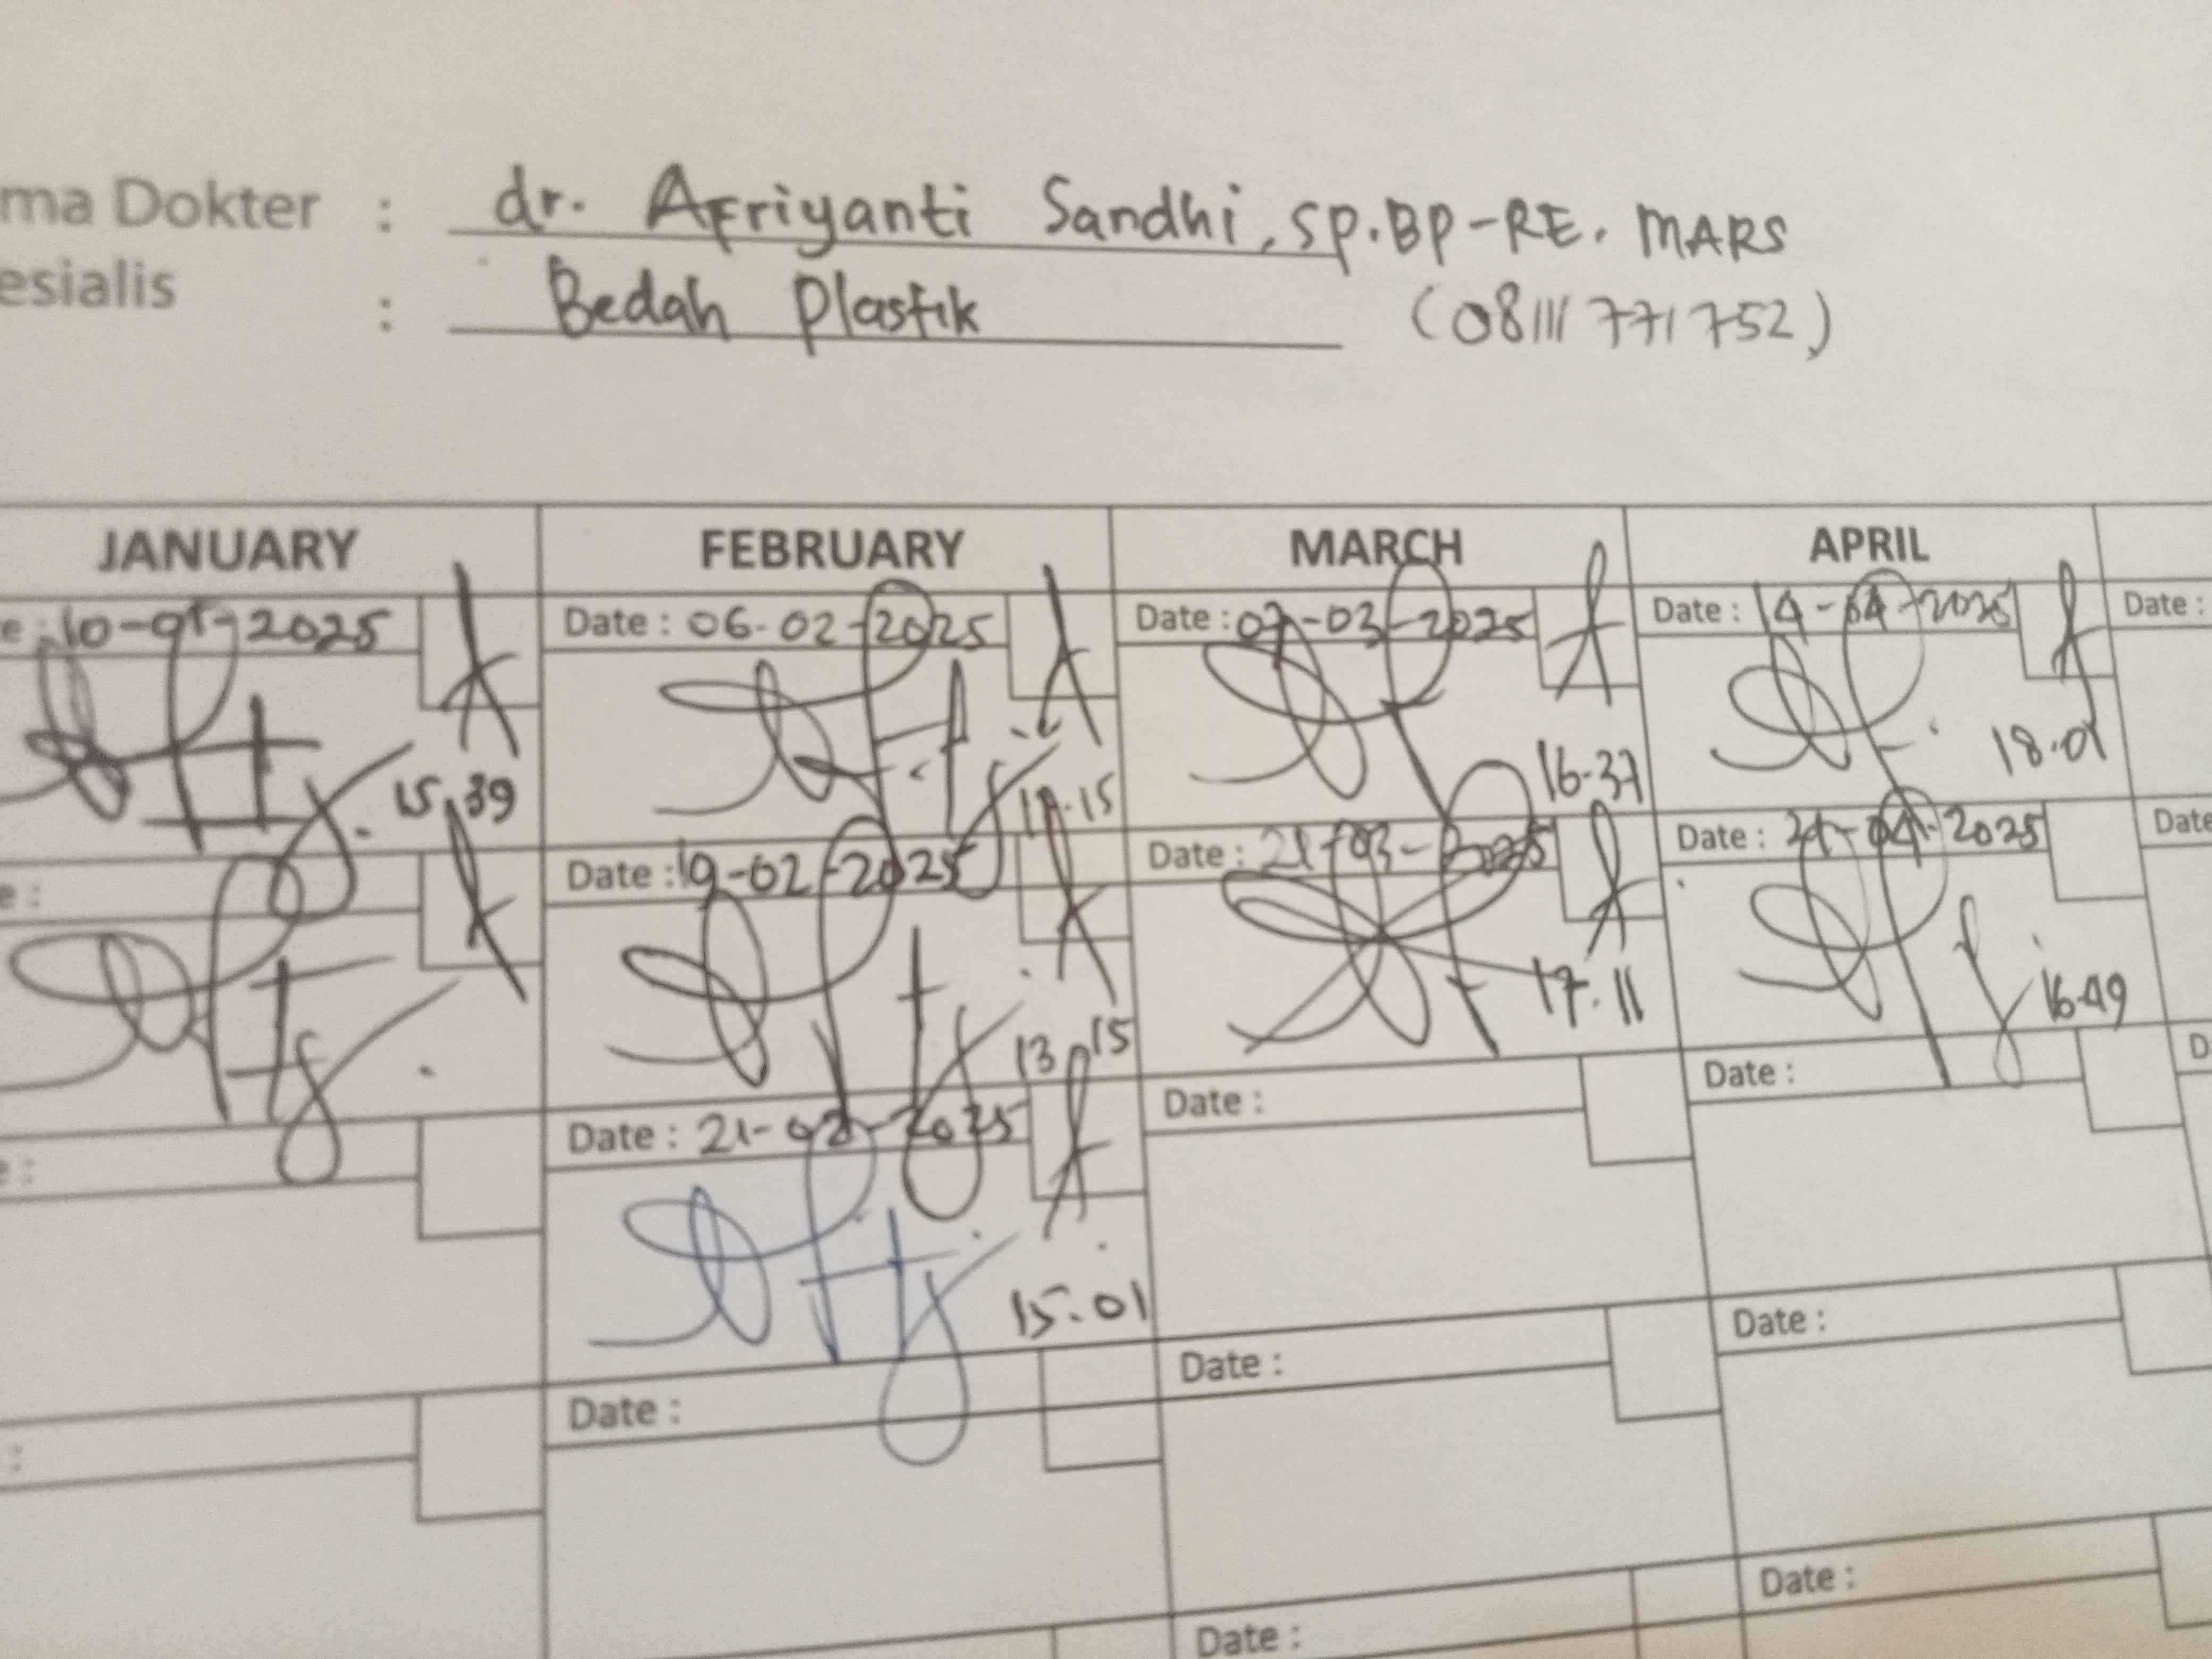 ma Dokter : dr. Afriyanti Sandhi, SP.BP-RE. MARS
esialis : Bedah Plastik (08111771752)
JANUARY FEBRUARY MARCH APRIL
e : 10-01-2025 Date : 06-02-2025 Date : 07-03-2025 Date : 14-04-2025 Date :
15.39 .15 16.37 18.01
e : Date : 19-02-2025 Date : 21-03-2025 Date : 21-04-2025 Date
13.15 17.11 16.49
e : Date : 21-02-2025 Date : Date : D
15.01
: Date : Date : Date :
Date : Date :